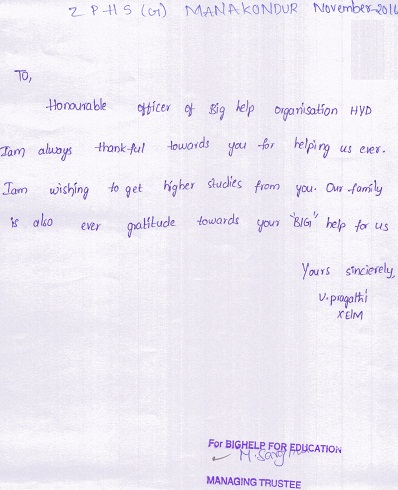 Z P H S (G) MANAKONDUR November-2016
To,
Honourable officer of Big help organisation HYD
Iam always thankful towards you for helping us ever.
Iam wishing to get higher studies from you. Our family
is also ever gratitude towards your "BIG" help for us
Yours sincierely,
V. pragathi
X E/M
For BIGHELP FOR EDUCATION
MANAGING TRUSTEE